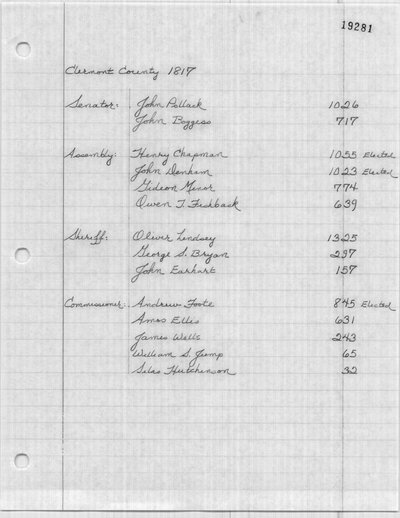 19281
Clermont County 1817
Senator: John Pollack 1026
John Boggess 717
Assembly: Henry Chapman 1055 Elected
John Denham 1023 Elected
Gideon Minor 774
Owen T. Fishback 639
Sheriff: Oliver Lindsey 1325
George S. Bryan 237
John Earhart 157
Commissioner: Andrew Foote 845 Elected
Amos Ellis 631
James Wells 243
William S. Jump 65
Silas Hutchinson 32